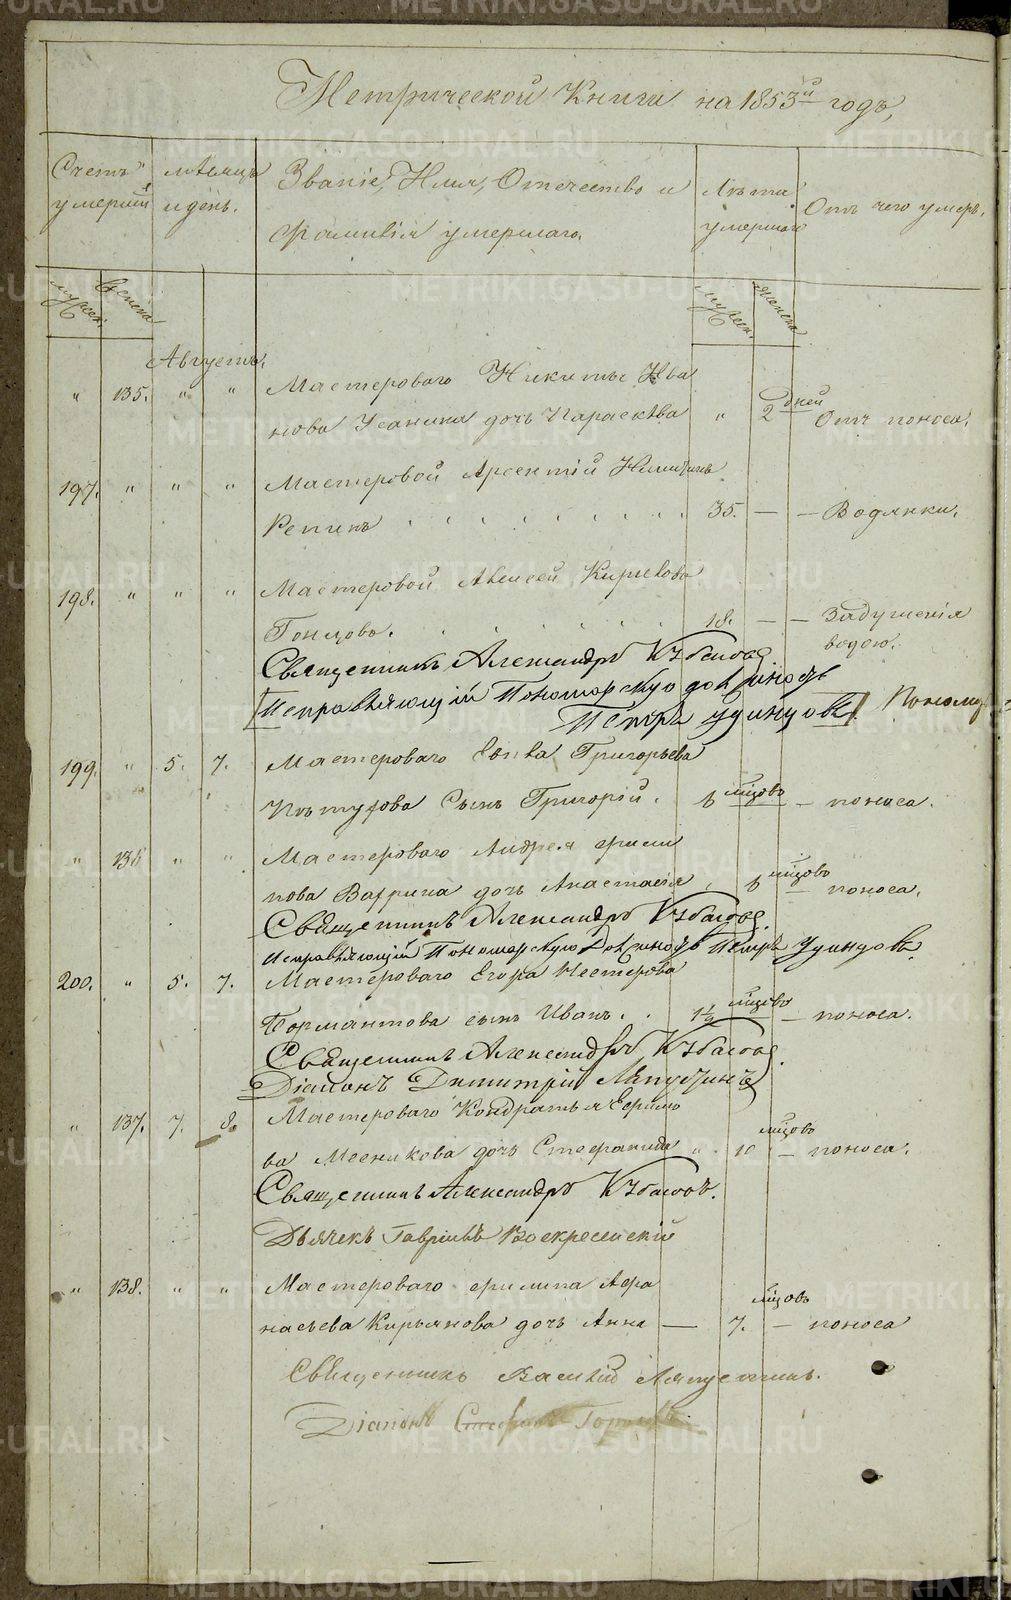 Метрической Книги на 1853й годъ,
Счетъ умерши
мѣсяцъ и день.
Званіе, Имя, Отечество и
Фамилія умершаго.
Лѣта умершаго
Отъ чего умеръ.
мужск. женска
мужск. женска
Августъ.
" 135. " " Мастероваго Никиты Ива
нова Усанина дочь Параскева " 2 дней Отъ поноса.
197. " " " Мастеровой Арсентій Никитинъ
Репинъ 35. — — Водянки.
198. " " " Мастеровой Алексей Кирилова
Гонцовъ. 18. — — Задушенія
водою.
Священникъ Александръ
Исправляющій Пономарскую должность
Петръ Удинцовъ.
199. " 5. 7. Мастероваго Григорьева
Сынъ Григорій. 6 мцовъ — поноса.
" 136 " " Мастероваго Андрея Филип
пова дочь Анастасія 6 мцовъ — поноса.
Священникъ Александръ
Исправляющій Пономарскую Должность Петръ Удинцовъ.
200. " 5. 7. Мастероваго Егора Нестерова
сынъ Иванъ. 1½ мцовъ — поноса.
Священникъ Александръ
Діаконъ Димитрій Ляпустинъ
" 137. 7. 8. Мастероваго Кондратья Ефимо
ва Мясникова дочь Стефанида " 10 мцовъ — поноса.
Священникъ Александръ
Дьячекъ Гавріилъ Воскресенскій
" 138. " " Мастероваго Филипа Афа
насьева Кирьянова дочь Анна — 7. мцовъ — поноса
Священникъ Василий Ляпустинъ.
Діаконъ
METRIKI.GASO-URAL.RU